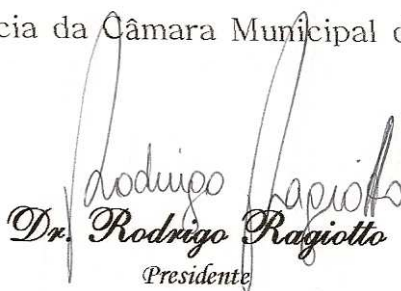 cia da Câmara Municipal d
Rodrigo Ragiotto
Dr. Rodrigo Ragiotto
Presidente